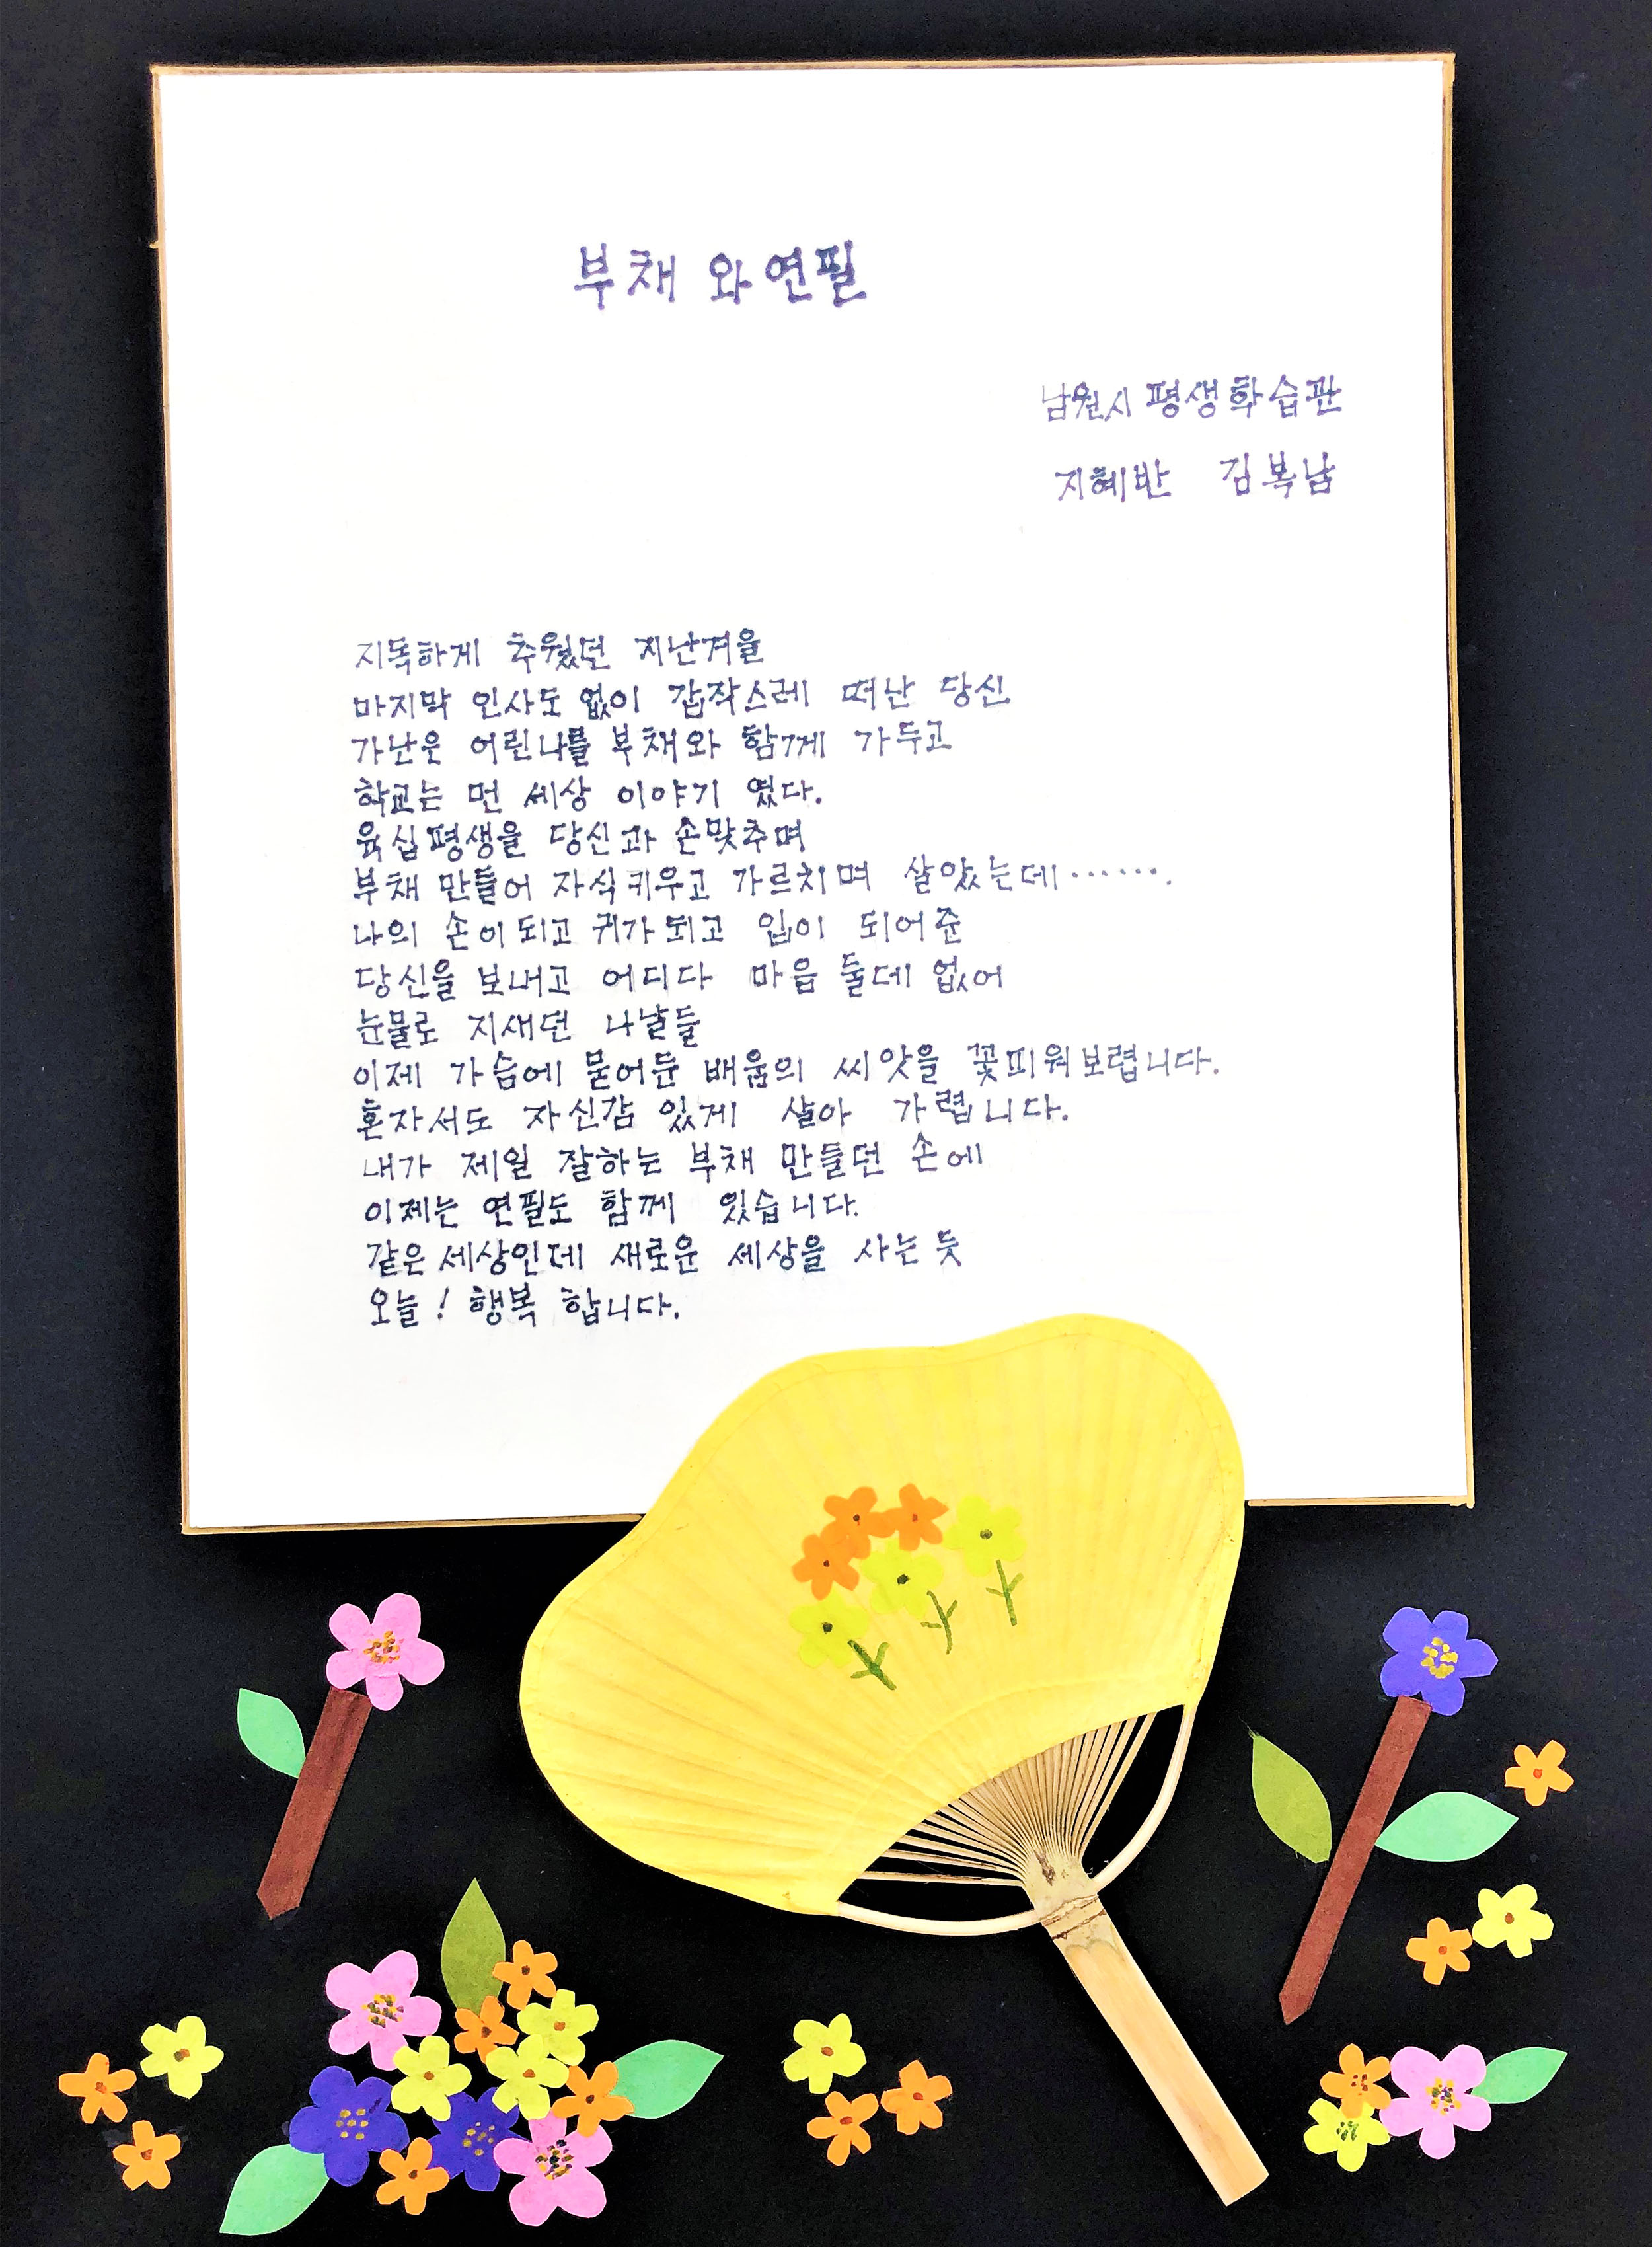 부채 와 연필
남원시 평생학습관
지혜반 김복남
지독하게 추웠던 지난겨울
마지막 인사도 없이 갑작스레 떠난 당신
가난은 어린나를 부채와 함께 가두고
학교는 먼 세상 이야기 였다.
육십평생을 당신과 손맞추며
부채 만들어 자식키우고 가르치며 살았는데.......
나의 손이되고 귀가되고 입이 되어준
당신을 보내고 어디다 마음 둘데 없어
눈물로 지새던 나날들
이제 가슴에 묻어둔 배움의 씨앗을 꽃피워보렵니다.
혼자서도 자신감 있게 살아 가렵니다.
내가 제일 잘하는 부채 만들던 손에
이제는 연필도 함께 있습니다.
같은세상인데 새로운 세상을 사는듯
오늘! 행복 합니다.